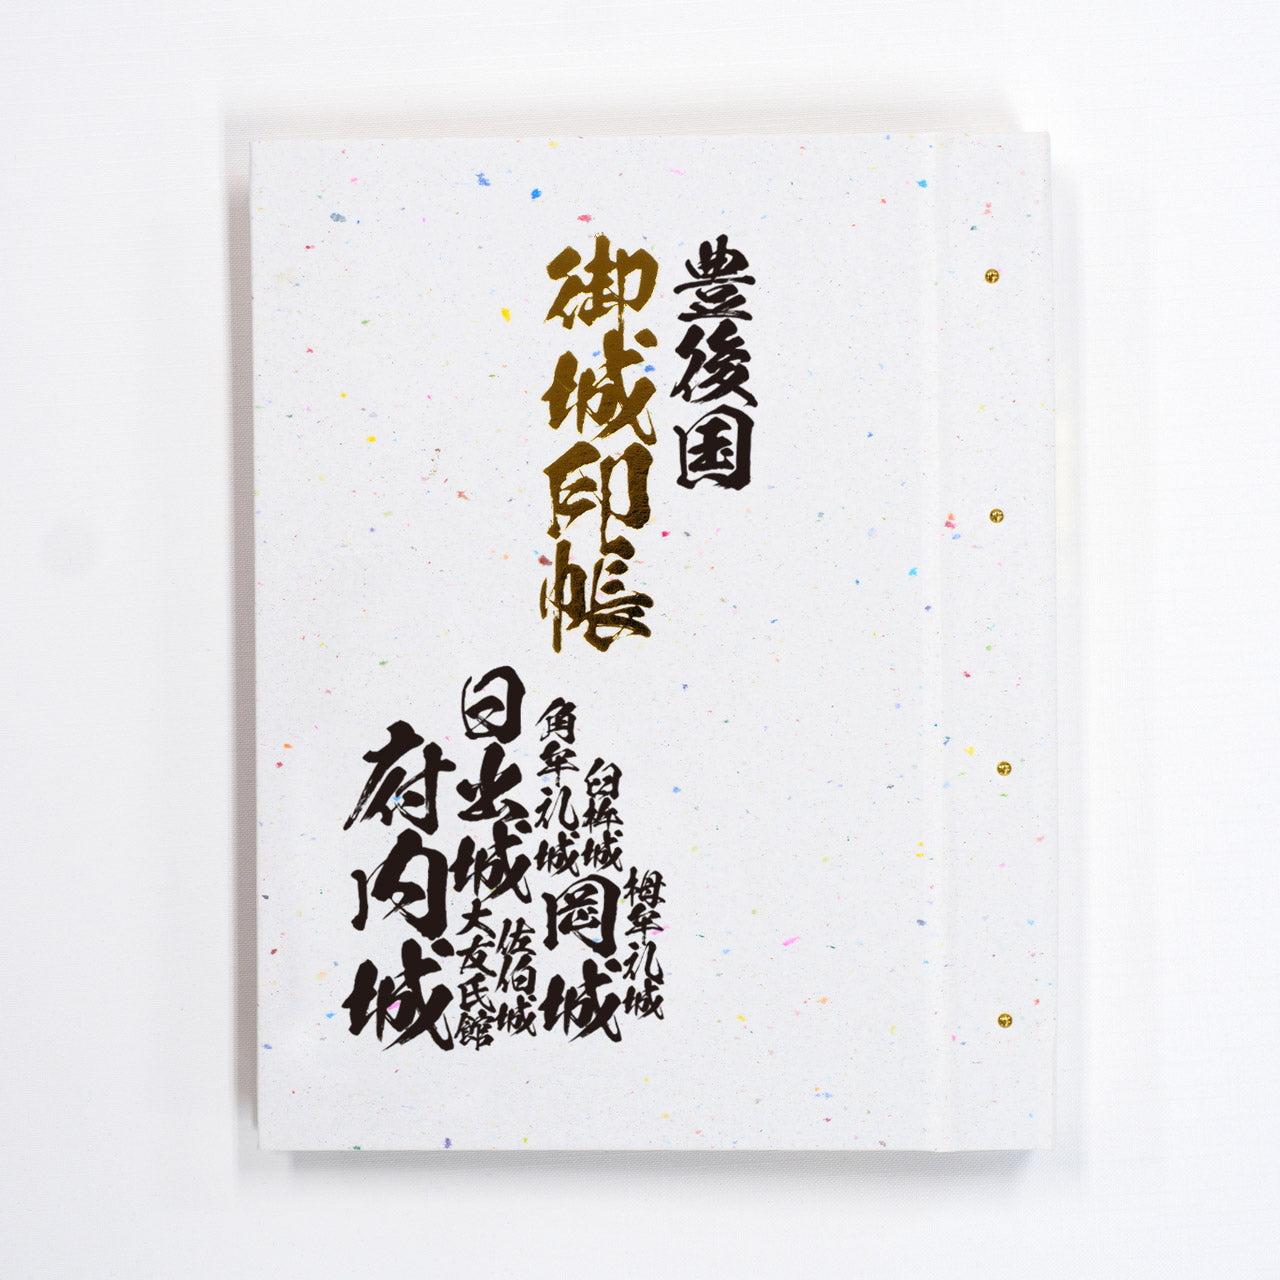 豊後国
御城印帳
栂牟礼城
臼杵城
岡城
角牟礼城
佐伯城
日出城
大友氏館
府内城